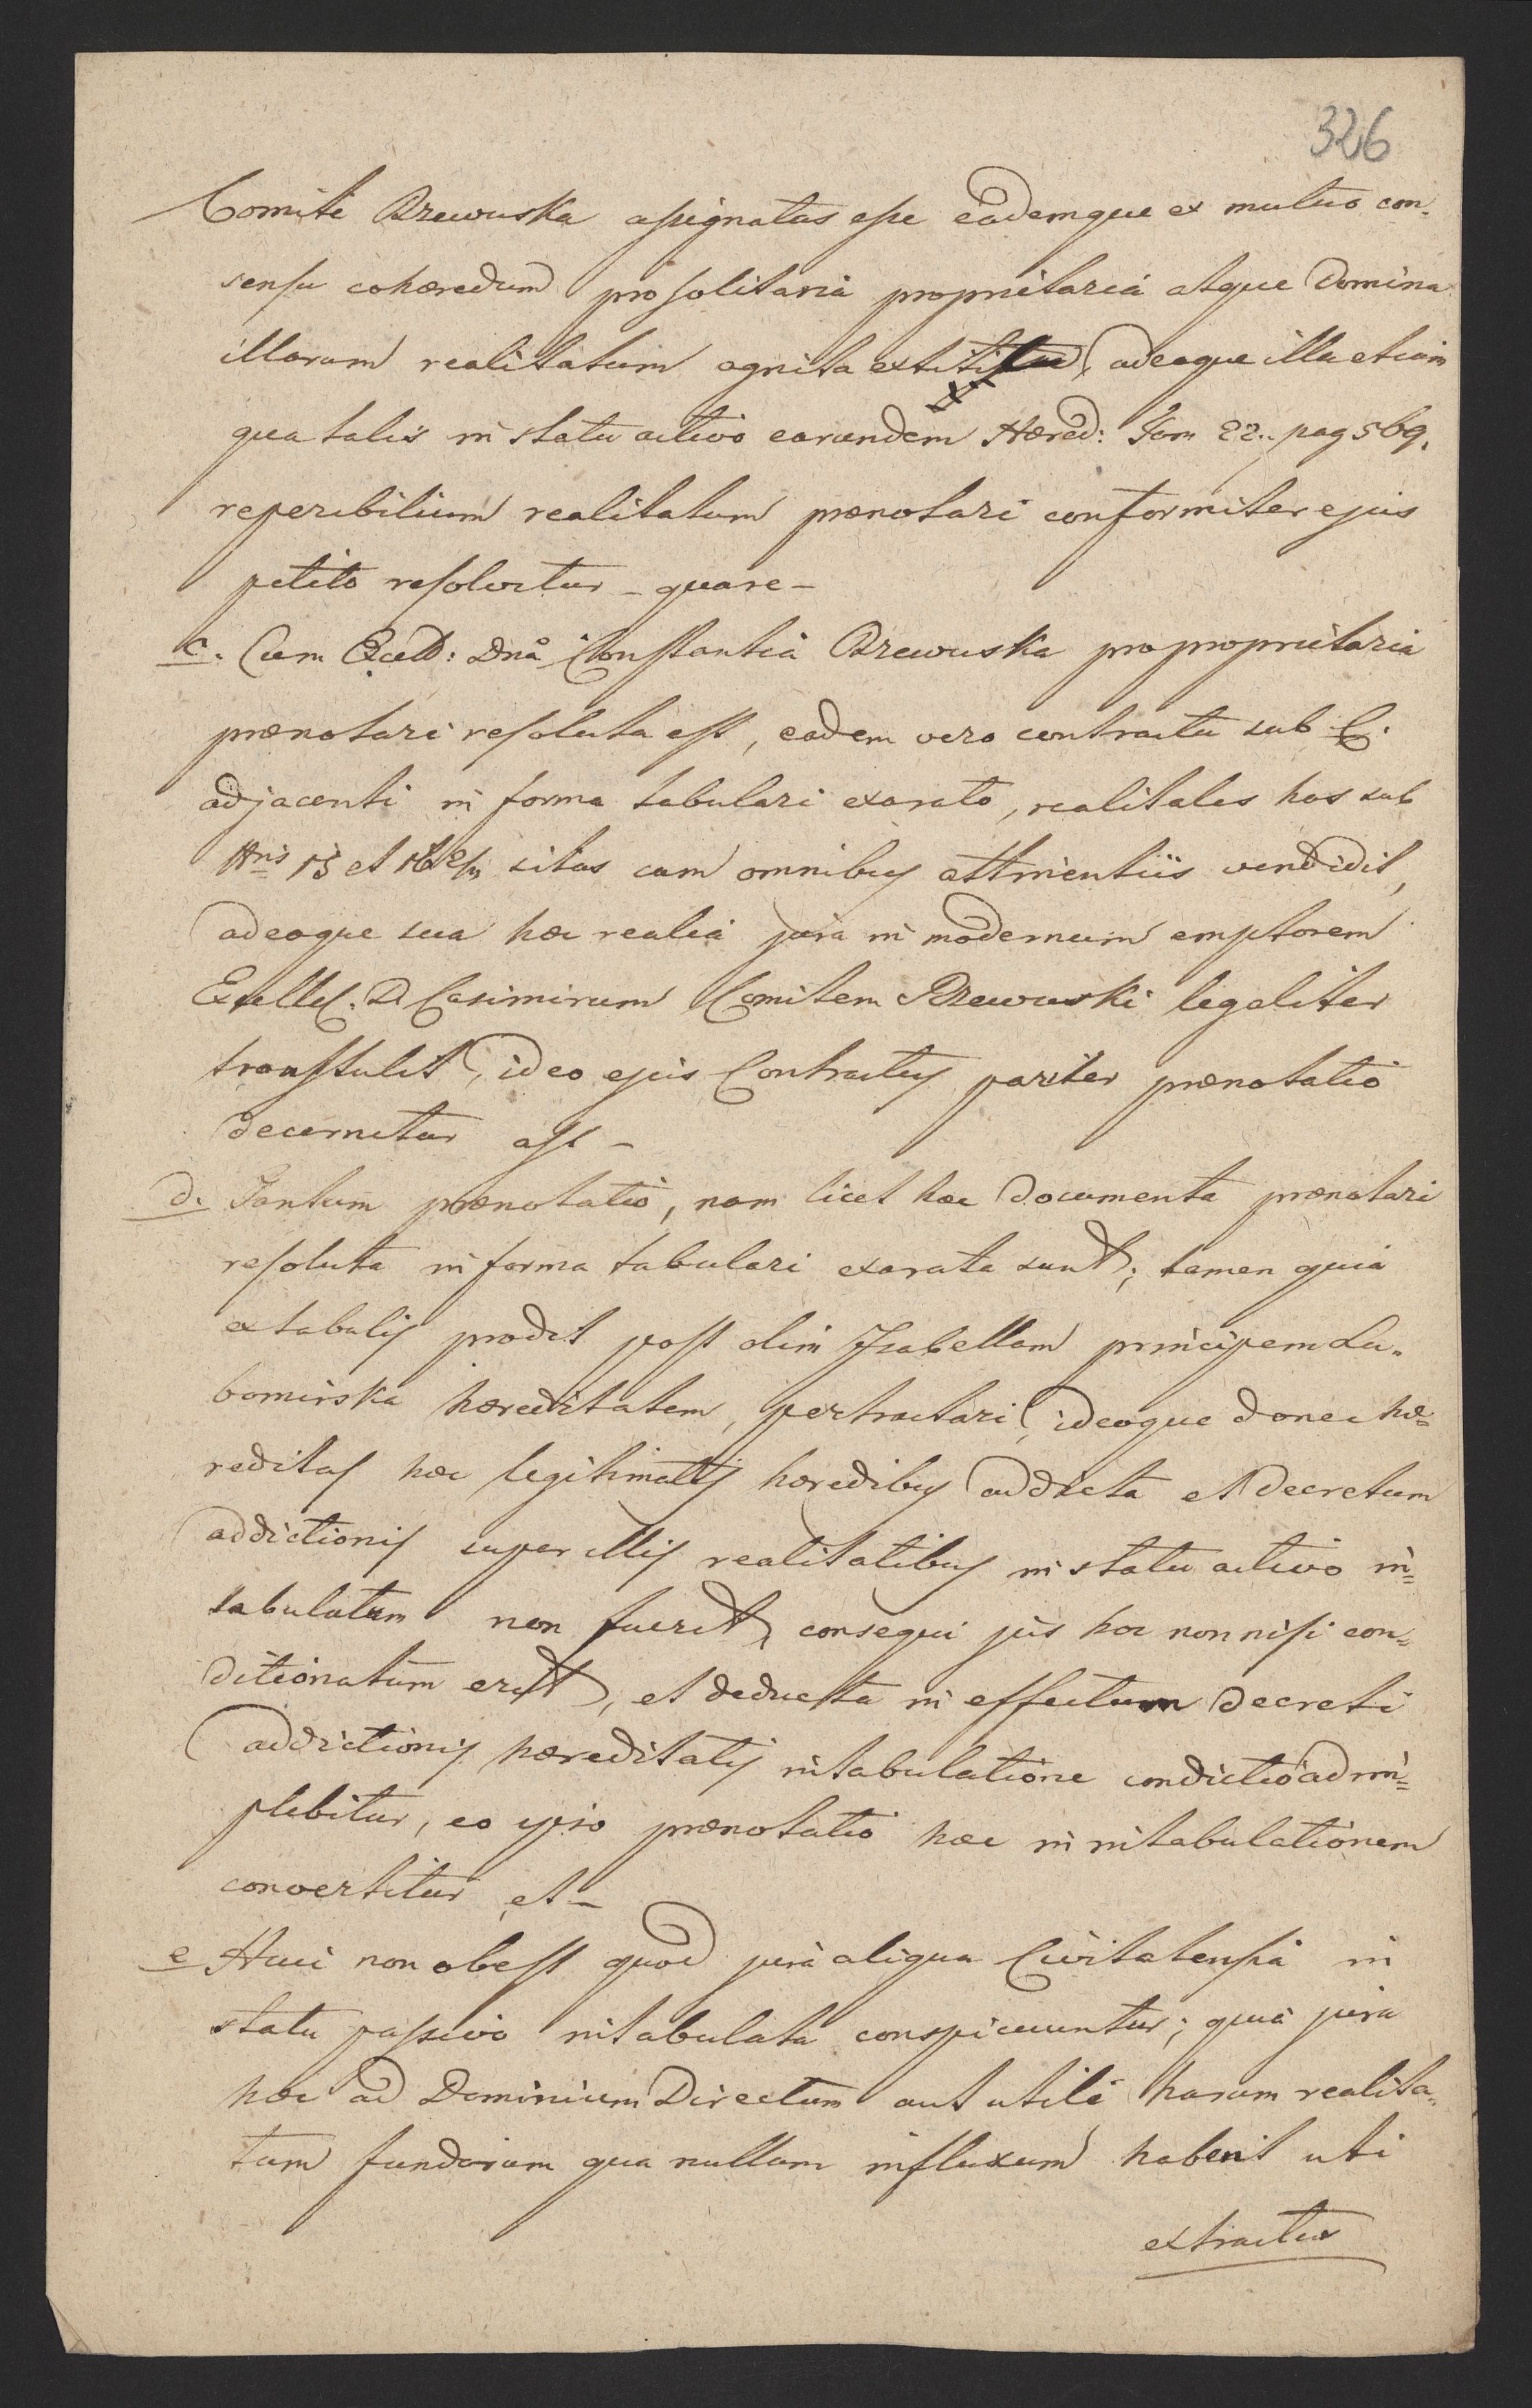 326
Comite Rzewuska assignatas esse eademque ex mutuo con-
sensu cohæredum pro solitaria proprietaria atque Domina
illarum realitatum agnita extitit, adeoque illa etiam
qua talis in statu activo earundem Hæred: Tom 22. pag 569.
reperibilium realitatum prænotari conformiter ejus
petito resolvitur – quare –
c. Cum Excell: Dnâ Constantia Rzewuska pro proprietaria
prænotari resoluta est, eadem vero contractu sub C.
adjacenti in forma tabulari exarato, realitates has sub
Nris 15 et 16 2/m sitas cum omnibus attinentiis vendidit,
adeoque sua hæc realia jura in modernum emptorem
Excell. D Casimirum Comitem Rzewuski legaliter
transtulit, ideo ejus Contractus pariter prænotatio
decernitur ast –
d. Tantum prænotatio, nam licet hæc documenta prænotari
resoluta in forma tabulari exarata sunt; tamen quia
ex tabulis prodit post olim Isabellam principem Lu-
bomirska hæreditatem, pertractari, ideoque donec hæ=
reditas hæc legitimatis hæredibus addicta et decretum
addictionis super illis realitatibus in statu activo in=
tabulatum non fuerit, consequi jus hoc nonnisi con=
ditionatum erit, et deducta in effectum decreti
addictionis hæreditatis intabulatione condictio adim=
plebitur, eo ipso prænotatio hæc in intabulationem
convertitur et –
e Huic non obest quod jura aliqua Civitatensia in
statu passivo intabulata conspiciuntur; quia jura
hæc ad Dominium Directum aut utile harum realita-
tum fundorum qua nullum influxum habent uti
extractus